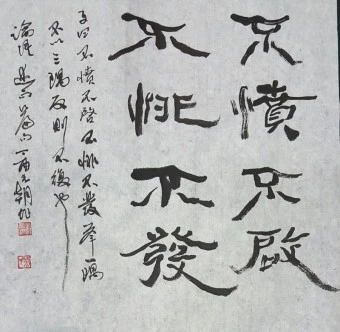 不憤不啟
不悱不發
子曰不憤不啓不悱不發舉一隅
不以三隅反則不復也
論語述而篇